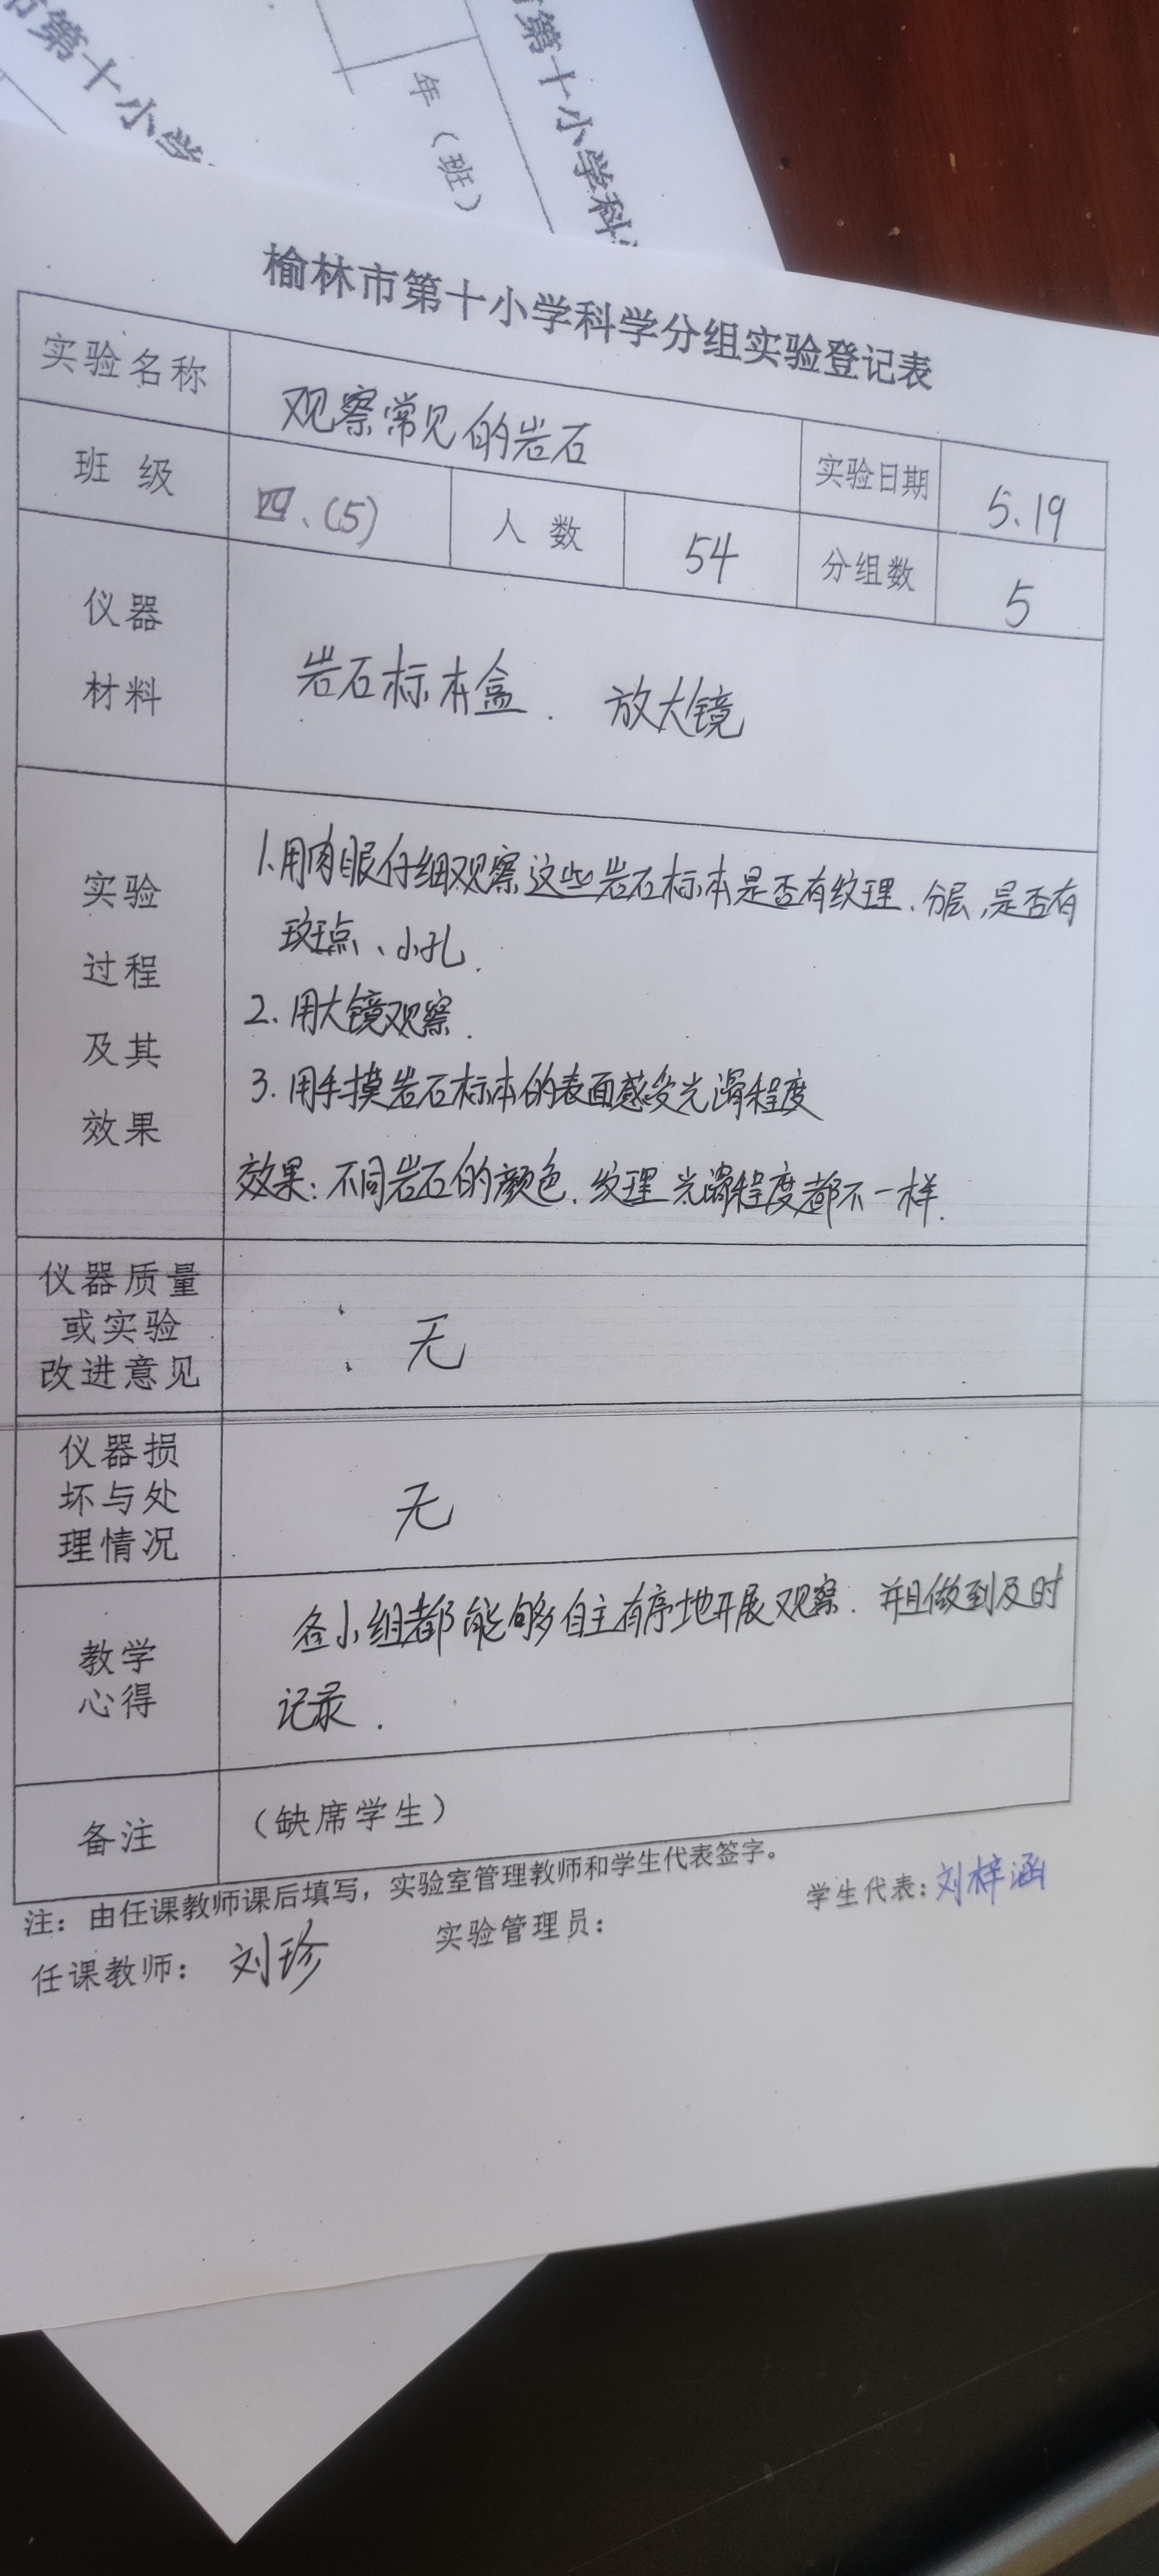 市第十小学
年（班）
市第十小学科
榆林市第十小学科学分组实验登记表
实验名称 观察常见的岩石 实验日期 5.19
班 级 四、(5) 人 数 54 分组数 5
仪器
材料
岩石标本盒. 放大镜
实验
过程
及其
效果
1.用肉眼仔细观察这些岩石标本是否有纹理、分层,是否有
斑点、小孔.
2.用大镜观察.
3.用手摸岩石标本的表面感受光滑程度
效果:不同岩石的颜色.纹理 光滑程度都不一样.
仪器质量
或实验
改进意见
无
仪器损
坏与处
理情况
无
教学
心得
各小组都能够自主有序地开展观察. 并且做到及时
记录.
备注 （缺席学生）
注：由任课教师课后填写，实验室管理教师和学生代表签字。
任课教师：刘珍 实验管理员： 学生代表:刘梓涵